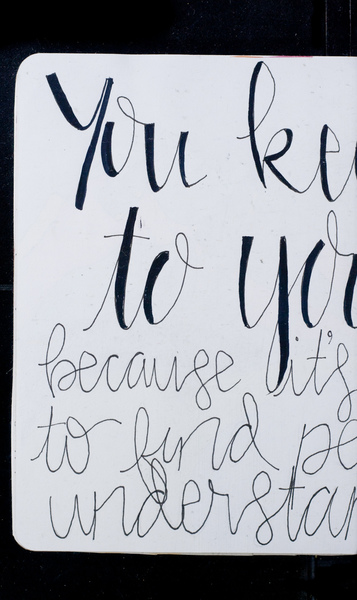 You ke
to yo
because it's
to find pe
understan